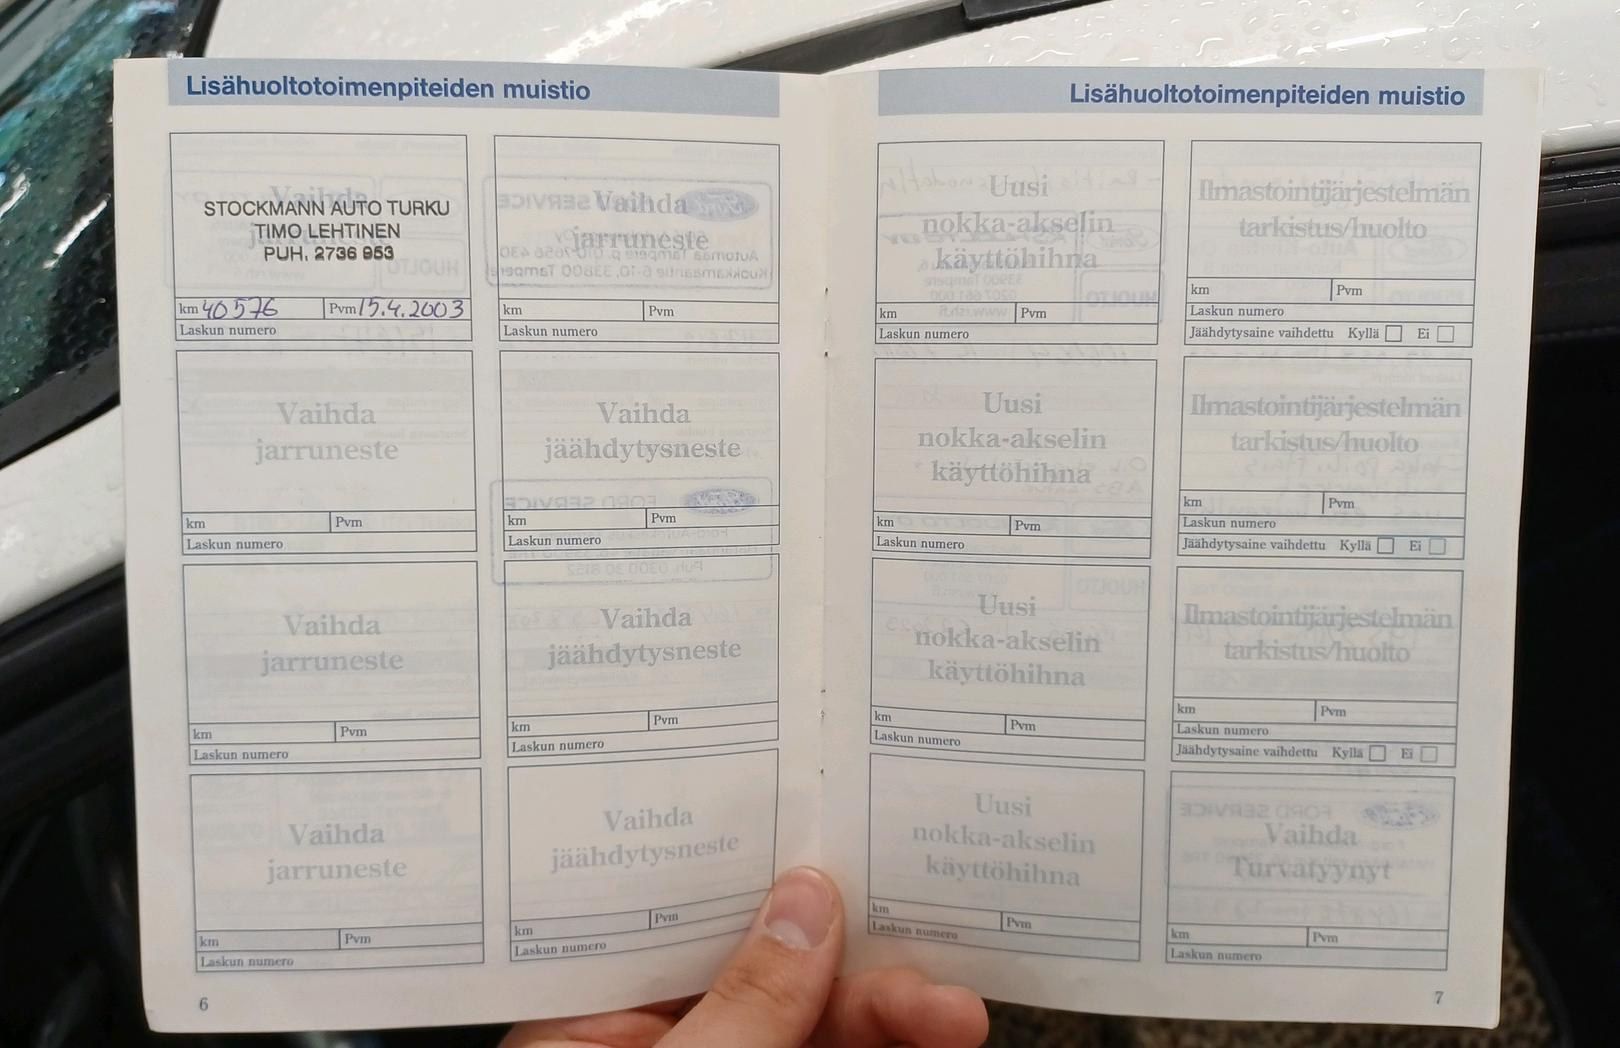 Lisähuoltotoimenpiteiden muistio
Vaihda
jarruneste
STOCKMANN AUTO TURKU
TIMO LEHTINEN
PUH. 2736 953
km 40 576 Pvm 15.4.2003
Laskun numero
Vaihda
jarruneste
km Pvm
Laskun numero
Vaihda
jarruneste
km Pvm
Laskun numero
Vaihda
jäähdytysneste
km Pvm
Laskun numero
Vaihda
jarruneste
km Pvm
Laskun numero
Vaihda
jäähdytysneste
km Pvm
Laskun numero
Vaihda
jarruneste
km Pvm
Laskun numero
Vaihda
jäähdytysneste
km Pvm
Laskun numero
6
Lisähuoltotoimenpiteiden muistio
Uusi
nokka-akselin
käyttöhihna
km Pvm
Laskun numero
Ilmastointijärjestelmän
tarkistus/huolto
km Pvm
Laskun numero
Jäähdytysaine vaihdettu Kyllä Ei
Uusi
nokka-akselin
käyttöhihna
km Pvm
Laskun numero
Ilmastointijärjestelmän
tarkistus/huolto
km Pvm
Laskun numero
Jäähdytysaine vaihdettu Kyllä Ei
Uusi
nokka-akselin
käyttöhihna
km Pvm
Laskun numero
Ilmastointijärjestelmän
tarkistus/huolto
km Pvm
Laskun numero
Jäähdytysaine vaihdettu Kyllä Ei
Uusi
nokka-akselin
käyttöhihna
km Pvm
Laskun numero
Vaihda
Turvatyynyt
km Pvm
Laskun numero
7